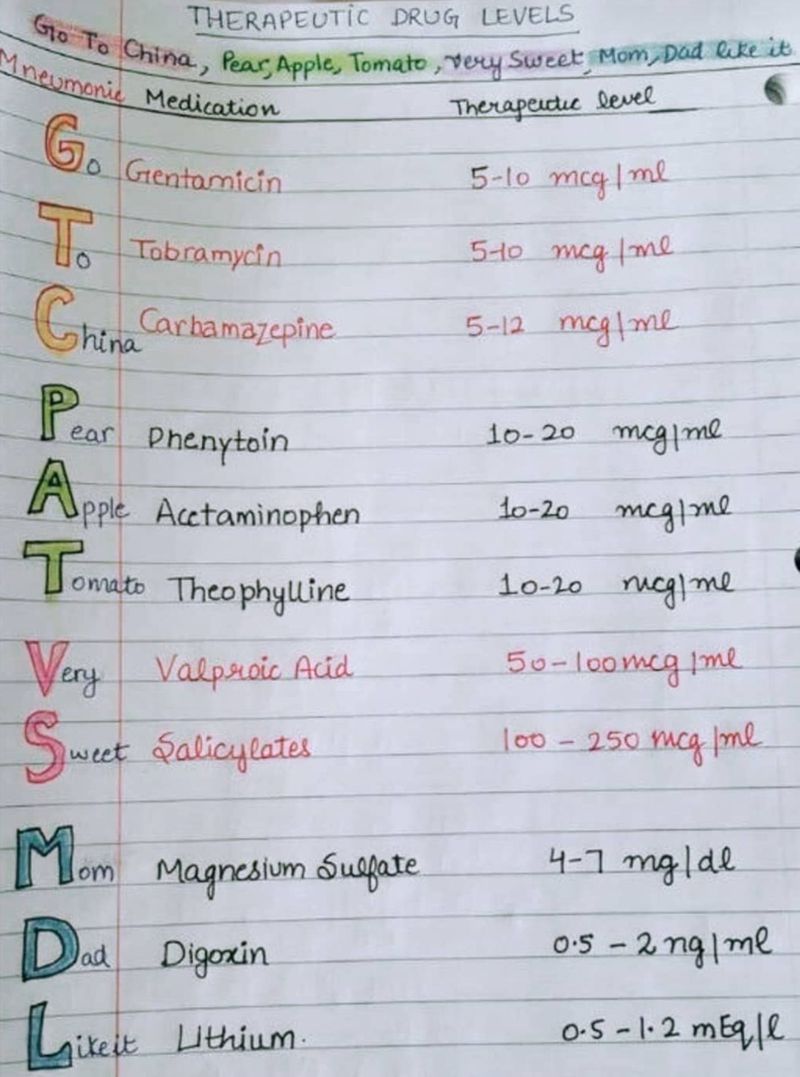 THERAPEUTIC DRUG LEVELS
Go To China, Pear, Apple, Tomato, Very Sweet, Mom, Dad like it
Mneumonic Medication Therapeutic level
Go Gentamicin 5-10 mcg/ml
To Tobramycin 5-10 mcg/ml
China Carbamazepine 5-12 mcg/ml
Pear Phenytoin 10-20 mcg/ml
Apple Acetaminophen 10-20 mcg/ml
Tomato Theophylline 10-20 mcg/ml
Very Valproic Acid 50-100 mcg/ml
Sweet Salicylates 100 - 250 mcg/ml
Mom Magnesium Sulfate 4-7 mg/dl
Dad Digoxin 0.5 - 2 ng/ml
Like it Lithium. 0.5 - 1.2 mEq/l